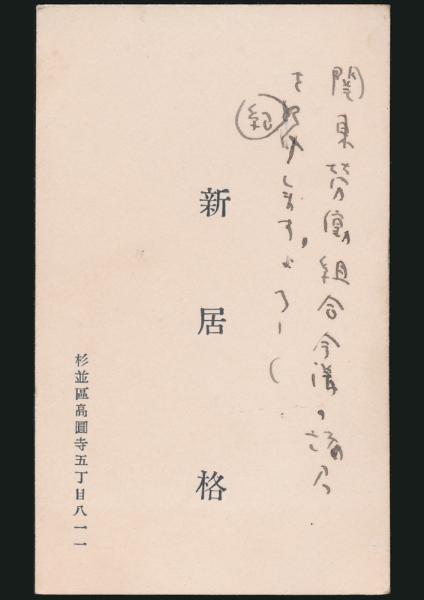 関東労働組合会議の諸君
を紹介しますよろしく
紹
新居格
杉並區高圓寺五丁目八一一